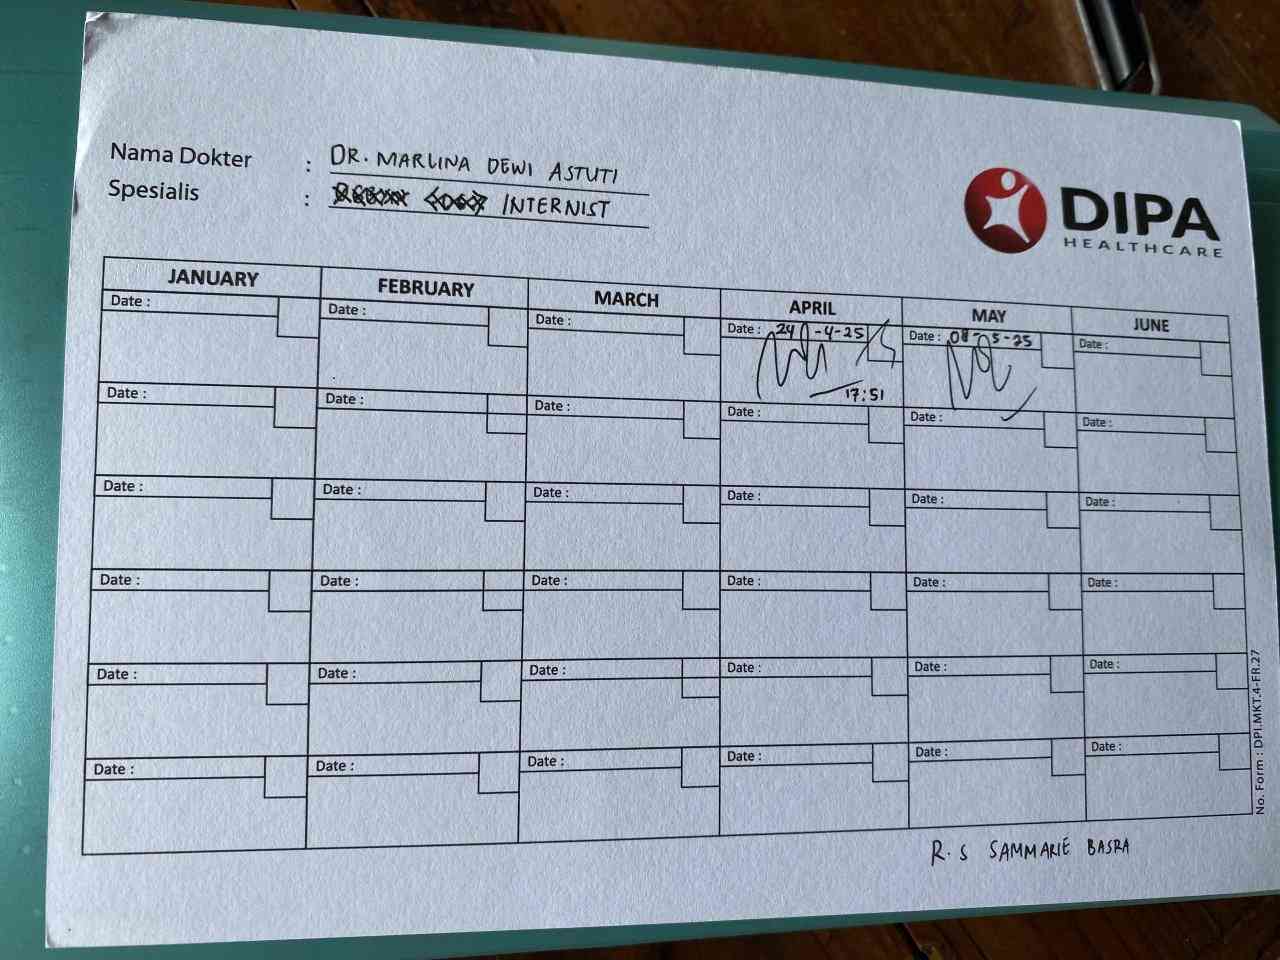 Nama Dokter : DR. MARLINA DEWI ASTUTI
Spesialis : INTERNIST
DIPA
HEALTHCARE
JANUARY FEBRUARY MARCH APRIL MAY JUNE
Date : Date : Date : Date : 24 -4-25 Date : 08-5-25 Date :
17:51
Date : Date : Date : Date : Date : Date :
Date : Date : Date : Date : Date : Date :
Date : Date : Date : Date : Date : Date :
Date : Date : Date : Date : Date : Date :
Date : Date : Date : Date : Date : Date :
No. Form : DPI.MKT.4-FR.27
R.S SAMMARIE BASRA